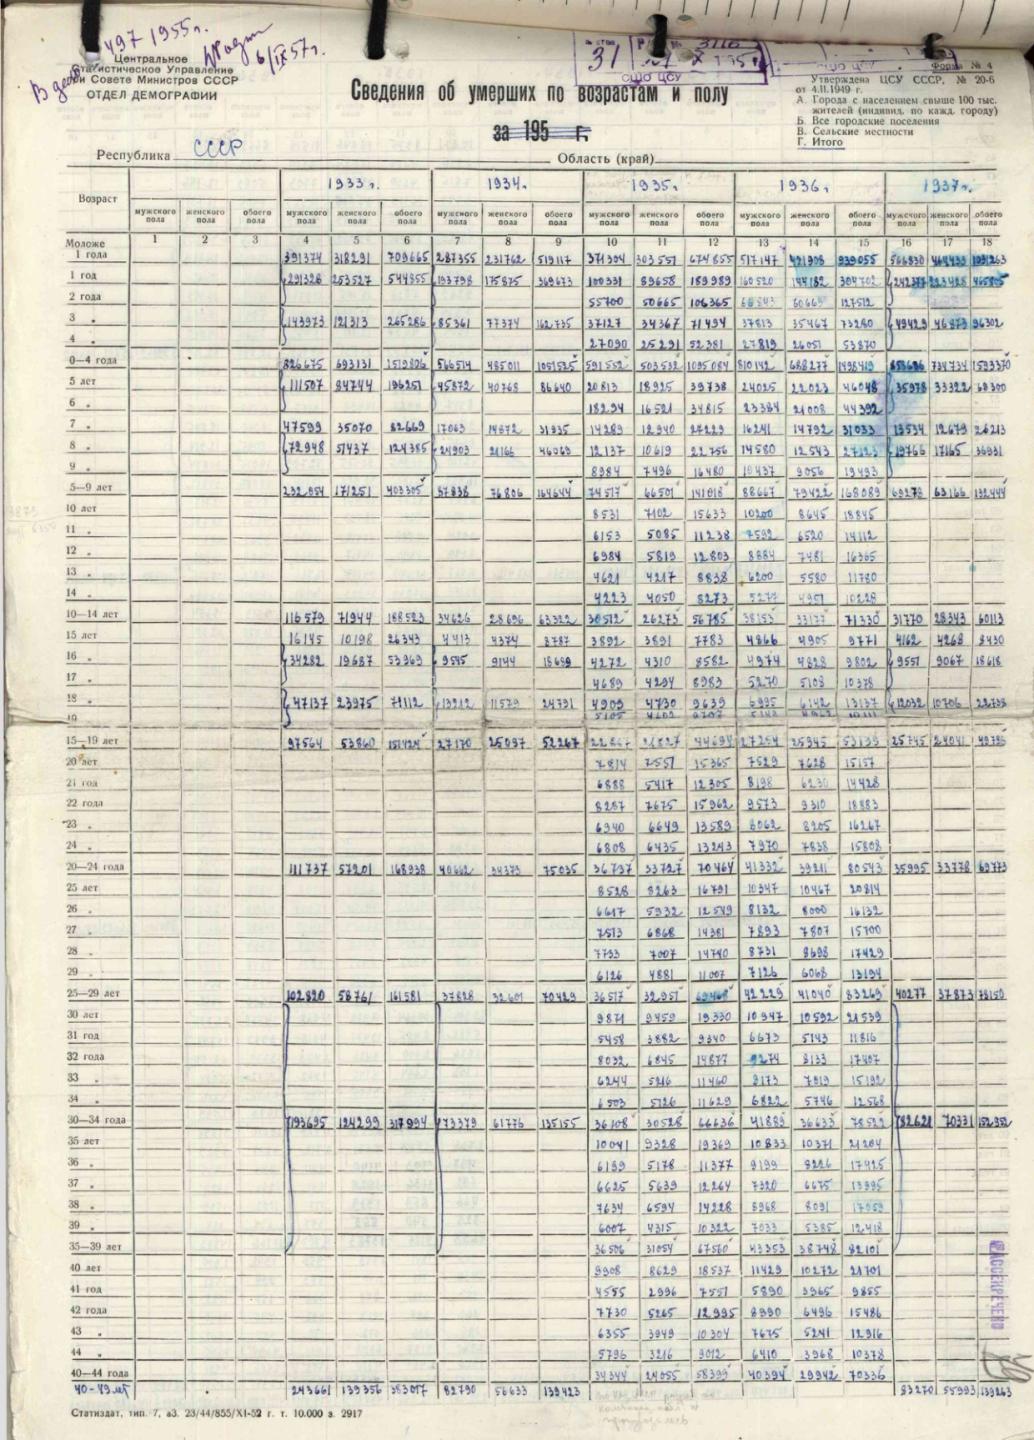 497 1955г.
6/IX57г.
31
СШО ЦСУ
Форма № 4
Центральное
Статистическое Управление
при Совете Министров СССР
ОТДЕЛ ДЕМОГРАФИИ
Утверждена ЦСУ СССР, № 20-6
от 4.II.1949 г.
А. Города с населением свыше 100 тыс.
жителей (индивид. по кажд. городу)
Б. Все городские поселения
В. Сельские местности
Г. Итого
Сведения об умерших по возрастам и полу
за 195 г.
Республика СССР Область (край)
Возраст 1933г. 1934г. 1935г. 1936г. 1937г.
мужского пола женского пола обоего пола мужского пола женского пола обоего пола мужского пола женского пола обоего пола мужского пола женского пола обоего пола мужского пола женского пола обоего пола мужского пола женского пола обоего пола
1 2 3 4 5 6 7 8 9 10 11 12 13 14 15 16 17 18
Моложе
1 года 391374 318291 709665 287355 231762 519117 371304 303551 674855 517147 421908 939055
1 год 291328 253527 544855 193798 175875 369673 100331 89658 189989 160520 144182 304702
2 года 55700 50665 106365 66843 60669 127512
3 " 143973 121313 265286 85361 77374 162735 37127 34367 71494 37813 35467 73280 49429 46873 96302
4 " 27090 25291 52381 27819 26051 53870
0—4 года 826675 693131 1519806 566514 485011 1051525 591552 503532 1095084 810142 688277 1498419
5 лет 111507 84744 196251 45872 40768 86640 20813 18925 39738 24025 22023 46048 35978 33322 69300
6 " 18294 16521 34815 23384 21008 44392
7 " 47599 35070 82669 17063 14872 31935 14289 12940 27229 16241 14792 31033 13534 12679 26213
8 " 72948 51437 124385 24903 21166 46069 12137 10619 22756 14580 12543 27123 19766 17165 36931
9 " 8984 7496 16480 10437 9056 19493
5—9 лет 232054 171251 403305 87838 76806 164644 74517 66501 141018 88667 79422 168089 69278 63166 132444
10 лет 8531 7102 15633 10200 8645 18845
11 " 6153 5085 11238 7592 6520 14112
12 " 6984 5819 12803 8884 7481 16365
13 " 4621 4217 8838 6200 5580 11780
14 " 4223 4050 8273 5277 4951 10228
10—14 лет 116579 71944 188523 34626 28696 63322 30512 26273 56785 38153 33177 71330 31770 28343 60113
15 лет 16145 10198 26343 4413 4374 8787 3892 3891 7783 4866 4905 9771 4162 4268 8430
16 " 34282 19687 53969 9545 9144 18689 4272 4310 8582 4974 4828 9802 9551 9067 18618
17 " 4689 4294 8983 5270 5108 10378
18 " 47137 23975 71112 13212 11579 24791 4909 4730 9639 6995 6142 13137 12032 10706 22738
19
15—19 лет 97564 53860 151424 27170 25097 52267 22867 21827 44694 25745 24041 49786
20 лет 7814 7551 15365 7529 7628 15157
21 год 6888 5417 12305 8198 6230 14428
22 года 8287 7675 15962 9573 9310 18883
23 " 6940 6649 13589 8062 8205 16267
24 " 6808 6435 13243 7970 7838 15808
20—24 года 111737 57201 168938 40662 34373 75035 36737 33727 70464 41332 39211 80543 35995 33778 69773
25 лет 8528 8263 16791 10347 10467 20814
26 " 6617 5932 12549 8132 8000 16132
27 " 7513 6868 14381 7893 7807 15700
28 " 7733 7007 14740 8731 8698 17429
29 " 6126 4881 11007 7126 6068 13194
25—29 лет 102820 58761 161581 37828 32601 70429 36517 32951 69468 42229 41040 83269 40277 37873 78150
30 лет 9871 9459 19330 10947 10592 21539
31 год 5458 3882 9340 6673 5143 11816
32 года 8032 6845 14877 9274 8133 17407
33 " 6244 5216 11460 8173 7019 15192
34 " 6503 5126 11629 6822 5746 12568
30—34 года 193695 124299 317994 73379 61776 135155 36108 30528 66636 41889 36633 78522 82621 70331 152952
35 лет 10041 9328 19369 10833 10371 21204
36 " 6199 5178 11377 8199 9226 17425
37 " 6625 5639 12264 7320 6675 13995
38 " 7634 6594 14228 8968 8091 17059
39 " 6007 4315 10322 7033 5385 12418
35—39 лет 36506 31054 67560 43353 38748 82101
40 лет 9908 8629 18537 11429 10272 21701
41 год 4555 2996 7551 5890 3965 9855
42 года 7730 5265 12995 8990 6496 15486
43 " 6355 3949 10304 7675 5241 12916
44 " 5796 3216 9012 6410 3968 10378
40—44 года 34344 24055 58399 40394 29942 70336
40-49 лет 243661 139356 383017 82790 56633 139423 83270 55993 139263
РАССЕКРЕЧЕНО
Статиздат, тип. 7, зЗ. 23/44/855/XI-52 г. т. 10.000 з. 2917